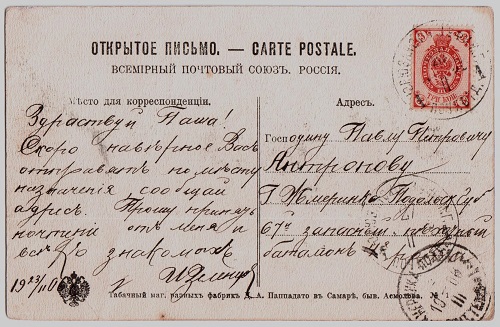 ОТКРЫТОЕ ПИСЬМО. — CARTE POSTALE.
ВСЕМІРНЫЙ ПОЧТОВЫЙ СОЮЗЪ. РОССІЯ.
Мѣсто для корреспонденціи.
Здравствуй Паша!
Скоро навѣрное Васъ
отправятъ по мѣсту
назначенія, сообщай
адресъ. Прошу принять
почтеніе отъ меня и
всѣхъ знакомыхъ
19 23/II 0
Адресъ.
Господину Павлу Петровичу
Антропову
Г. Жмеринка Подольск. Губ
67й запасный пѣхотный
баталіонъ
Табачный маг. разныхъ фабрикъ Д. А. Паппадато въ Самарѣ, быв. Асмолова.